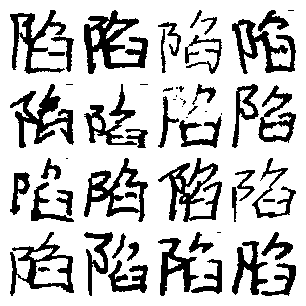 陷陷陷陷
陷陷陷陷
陷陷陷陷
陷陷陷陷